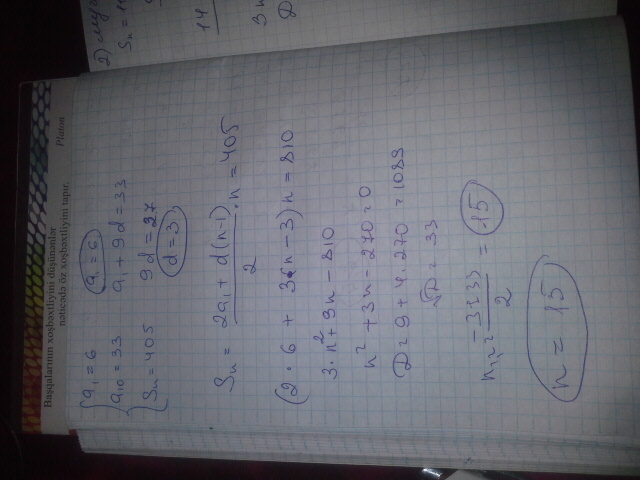 Başqalarının xoşbəxtliyini düşünənlər
nəticədə öz xoşbəxtliyini tapır.
Platon
a₁ = 6
a₁₀ = 33
Sₙ = 405
a₁ = 6
a₁ + 9d = 33
9d = 27
d = 3
Sₙ = (2a₁ + d(n-1))/2 · n = 405
(2 · 6 + 3n - 3)n = 810
3 · n² + 9n - 810
n² + 3n - 270 = 0
D = 9 + 4 · 270 = 1089
√D = 33
n₁,₂ = (-3 ± 33)/2 = 15
n = 15
2)
Sₙ =
14
3n
D